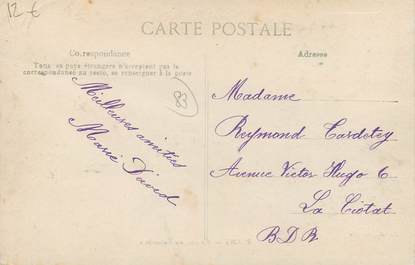 12 €
CARTE POSTALE
Correspondance
Tous les pays étrangers n'acceptent pas la
correspondance au recto, se renseigner à la poste
Adresse
83
Meilleures amitiés
Marie David
Madame
Reymond Cardetey
Avenue Victor Hugo 6
La Ciotat
B.D.R